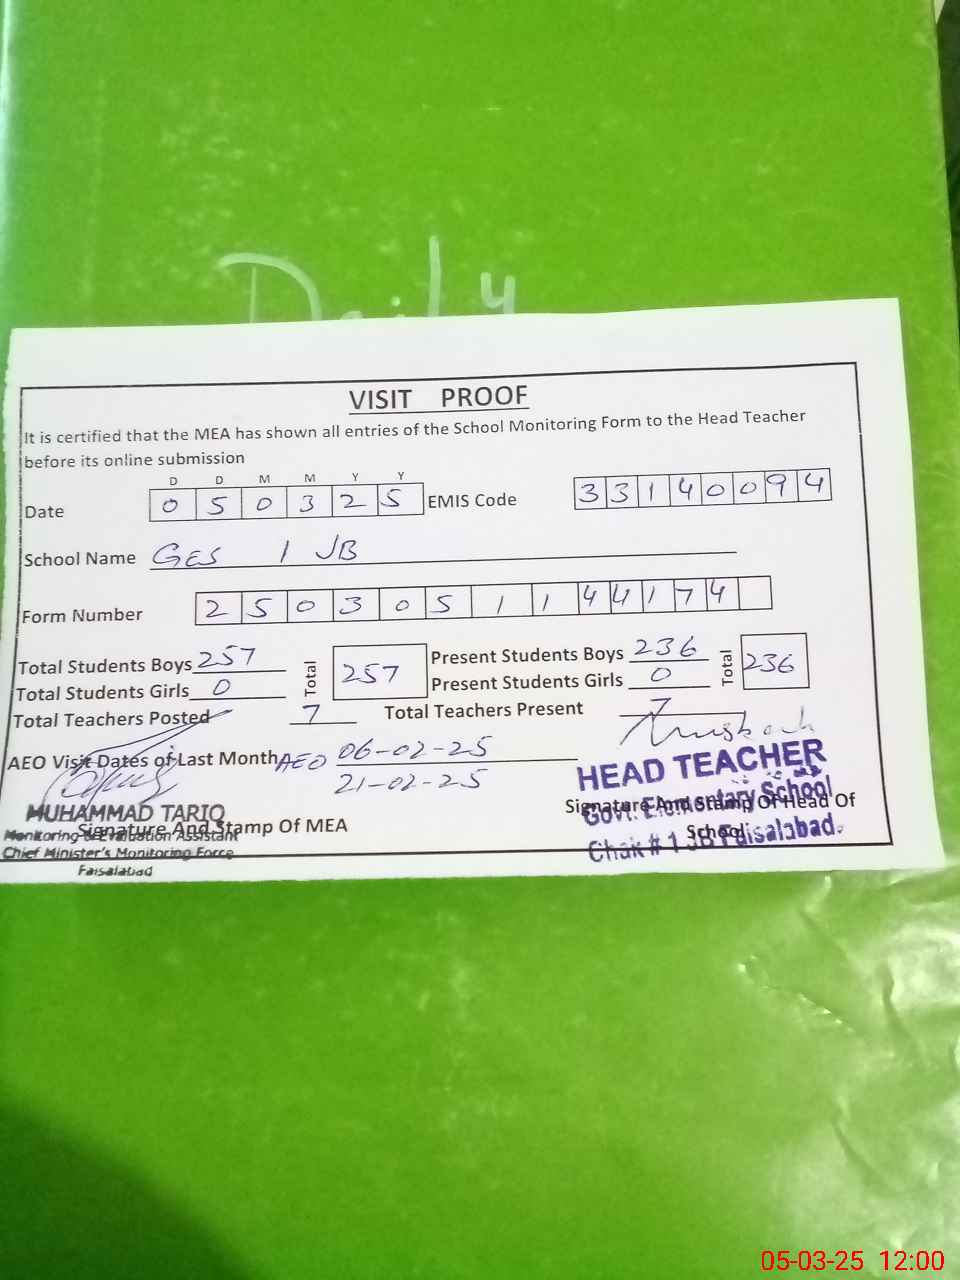 Daily
VISIT PROOF
It is certified that the MEA has shown all entries of the School Monitoring Form to the Head Teacher
before its online submission
D D M M Y Y
Date 0 5 0 3 2 5 EMIS Code 3 3 1 4 0 0 9 4
School Name GES 1 JB
Form Number 2 5 0 3 0 5 1 1 4 4 1 7 4
Total Students Boys 257 Total 257 Present Students Boys 236 Total 236
Total Students Girls 0 Present Students Girls 0
Total Teachers Posted 7 Total Teachers Present 7
AEO Visit Dates of Last Month AEO 06-02-25
21-02-25
HEAD TEACHER
Govt. Elementary School
Chak # 1 JB Faisalabad.
Signature And Stamp Of Head Of
School
MUHAMMAD TARIQ
Signature And Stamp Of MEA
Monitoring & Evaluation Assistant
Chief Minister's Monitoring Force
Faisalabad
05-03-25 12:00